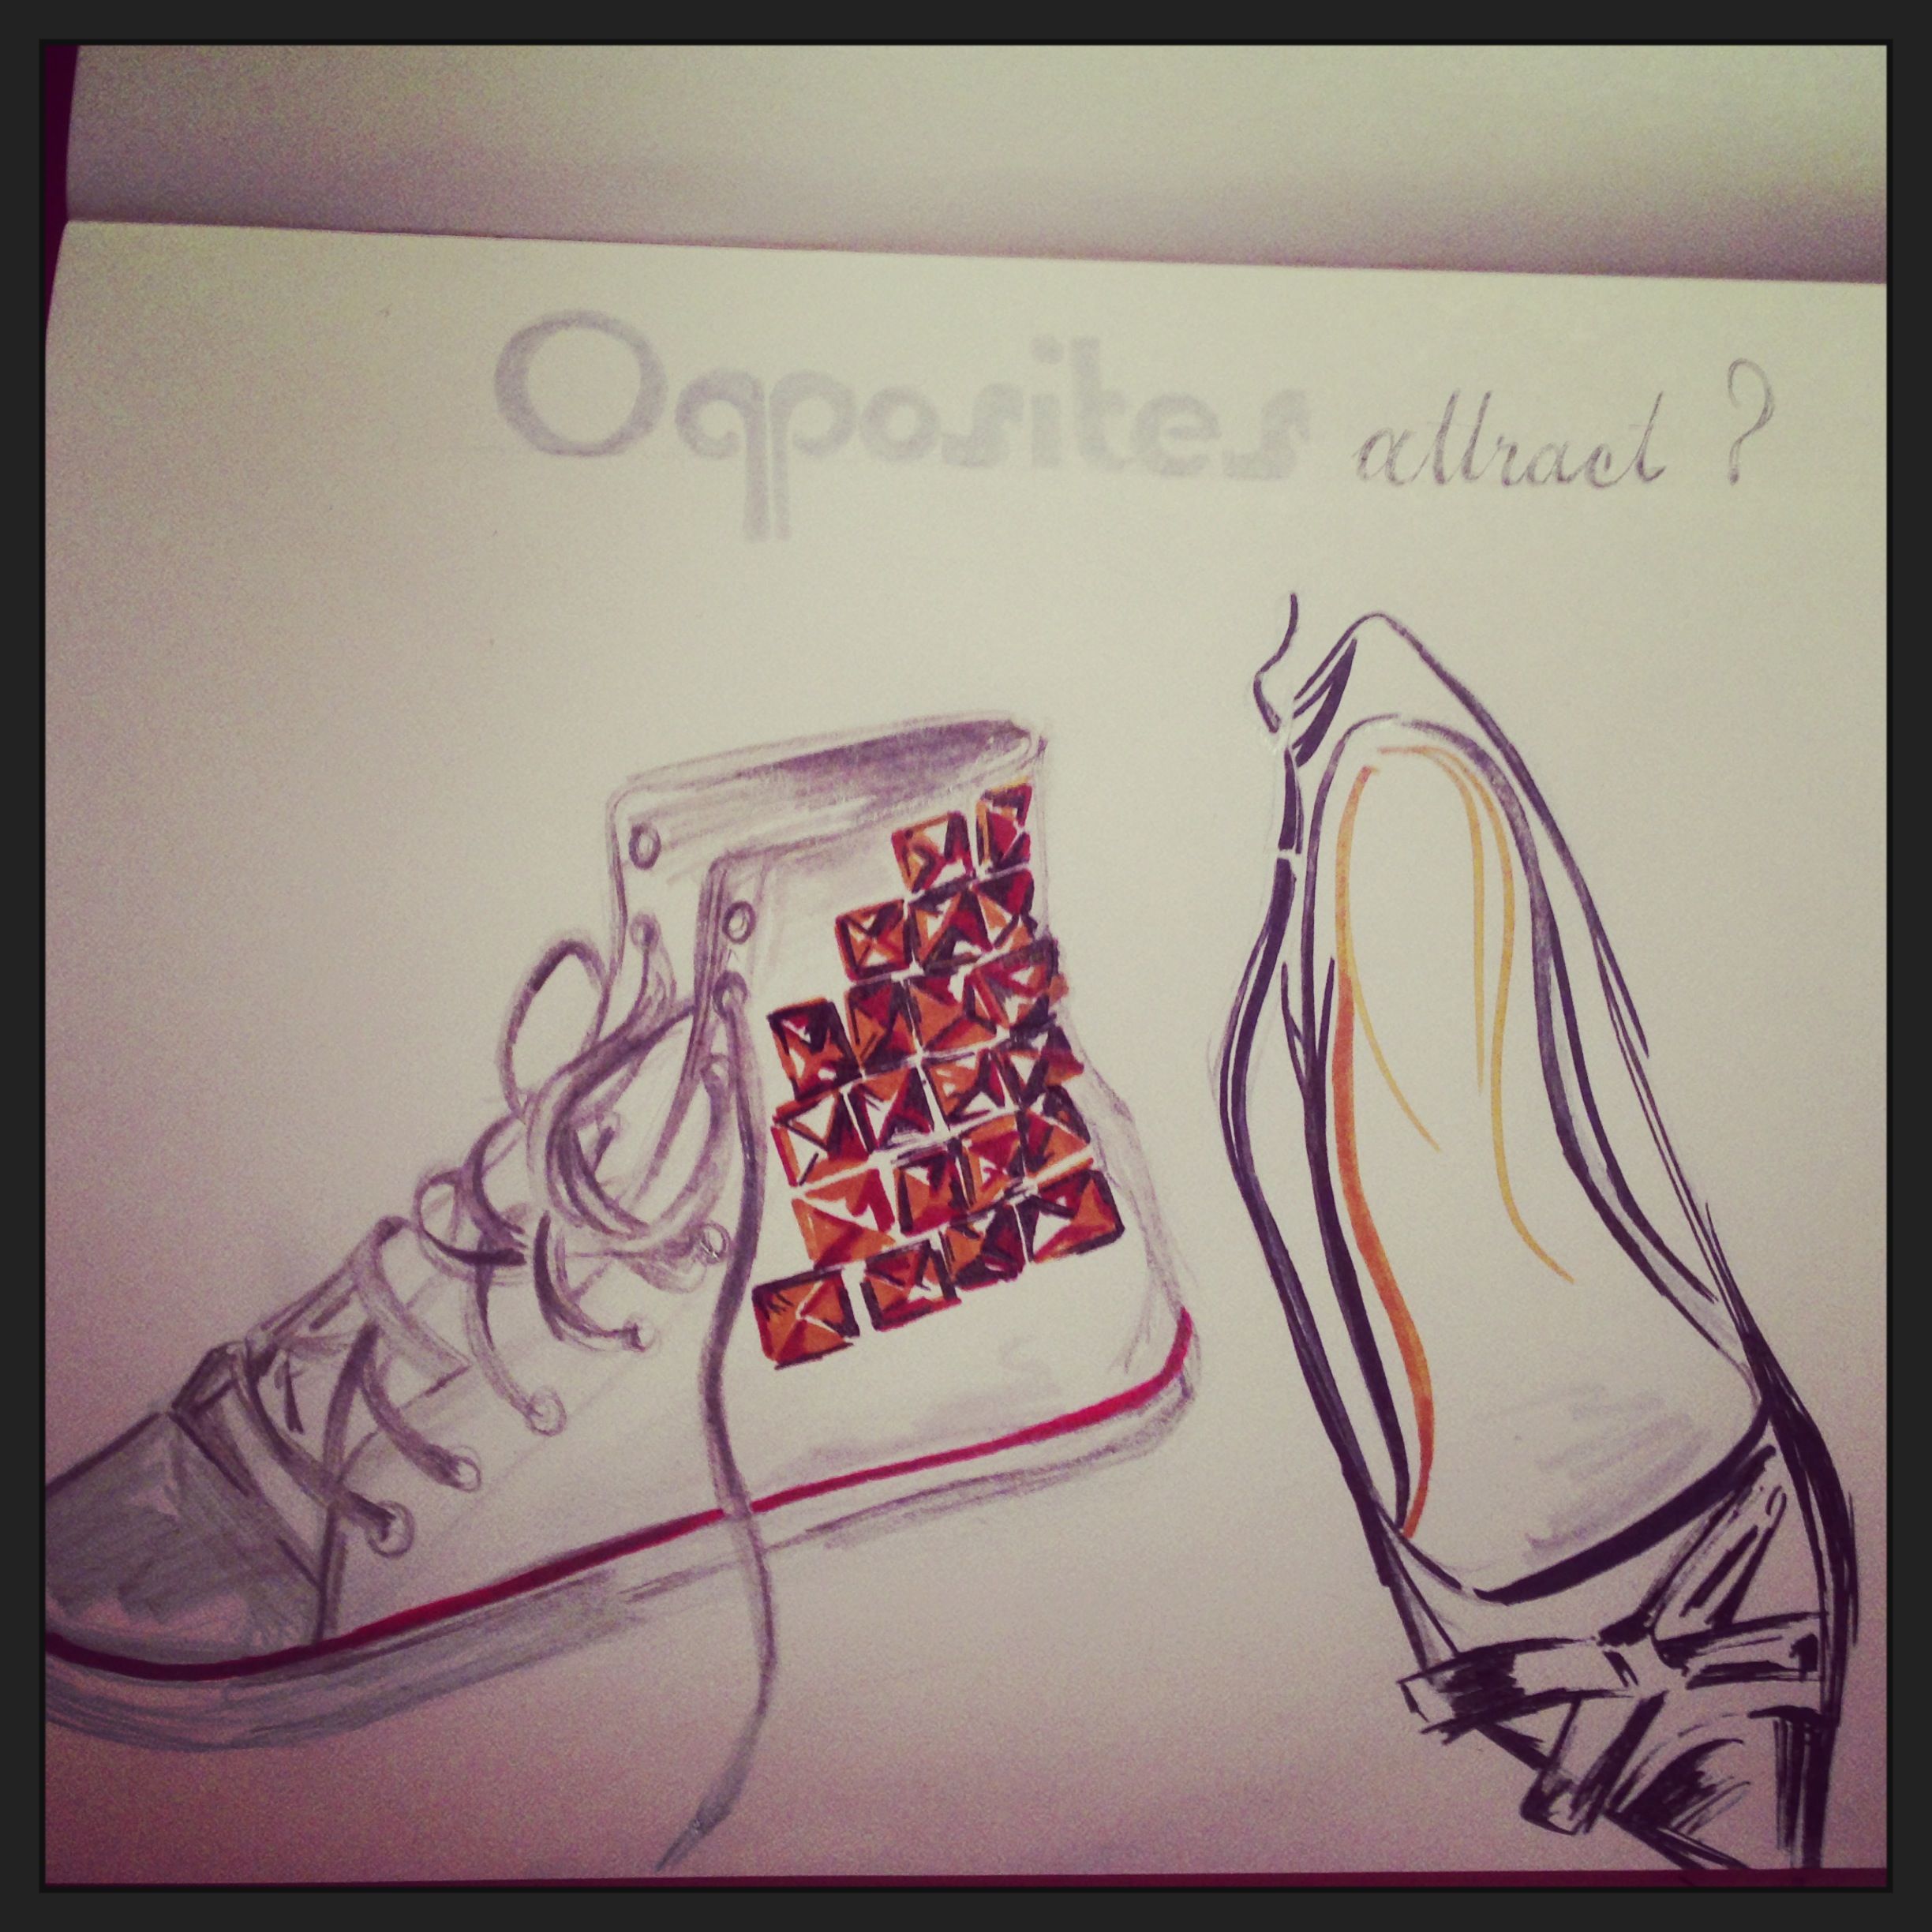 Oqposites attract ?